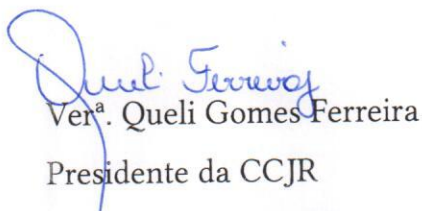 Queli Ferreira
Verª. Queli Gomes Ferreira
Presidente da CCJR